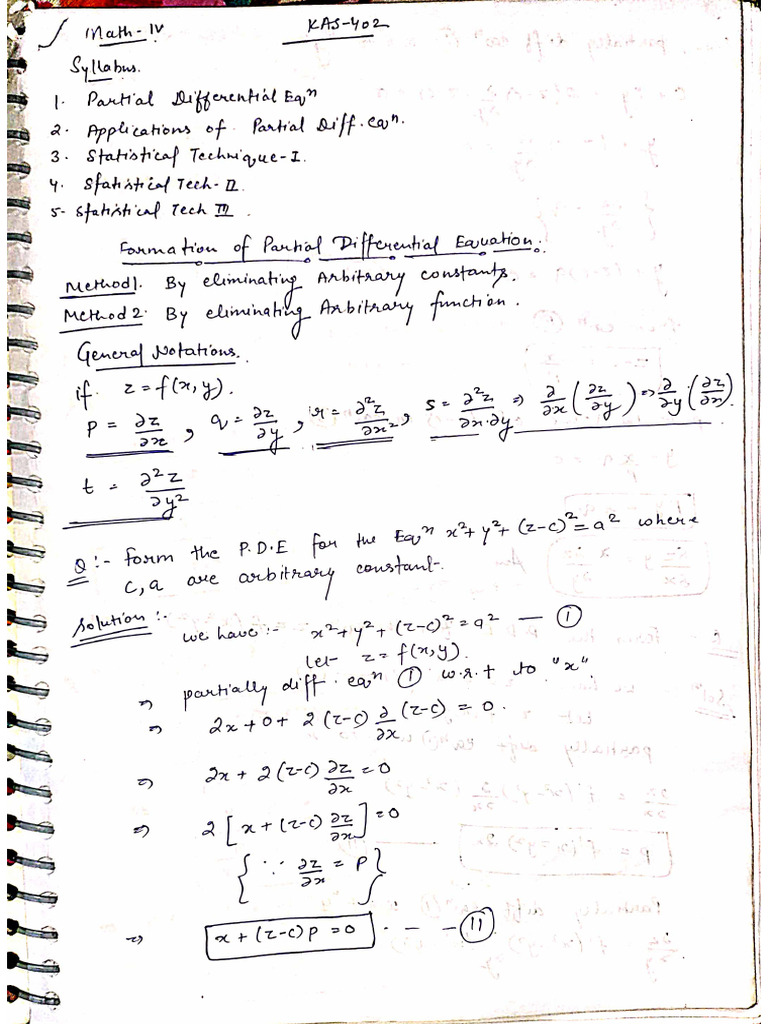 Math-IV KAS-402
Syllabus.
1. Partial Differential Eqⁿ
2. Applications of Partial Diff. eqⁿ.
3. Statistical Technique-I.
4. Statistical Tech-II
5- Statistical Tech III.
Formation of Partial Differential Equation.
Method 1. By eliminating Arbitrary constants.
Method 2. By eliminating Arbitrary function.
General Notations.
if z = f(x,y).
p = ∂z/∂x, q = ∂z/∂y, r = ∂²z/∂x², s = ∂²z/∂x.∂y ⇒ ∂/∂x (∂z/∂y) ⇒ ∂/∂y (∂z/∂x).
t = ∂²z/∂y²
Q :- form the P.D.E for the Eqⁿ x²+y²+(z-c)²=a² where
c, a are arbitrary constant-.
Solution :-
we have :- x²+y²+(z-c)²=a² — ①
let z = f(x,y).
⇒ partially diff. eqⁿ ① w.r.t to "x"
⇒ 2x+0+2(z-c) ∂/∂x (z-c) = 0.
⇒ 2x+2(z-c) ∂z/∂x = 0
⇒ 2[x+(z-c) ∂z/∂x] = 0
{∵ ∂z/∂x = P}
⇒ x+(z-c)p = 0 . - - - (11)